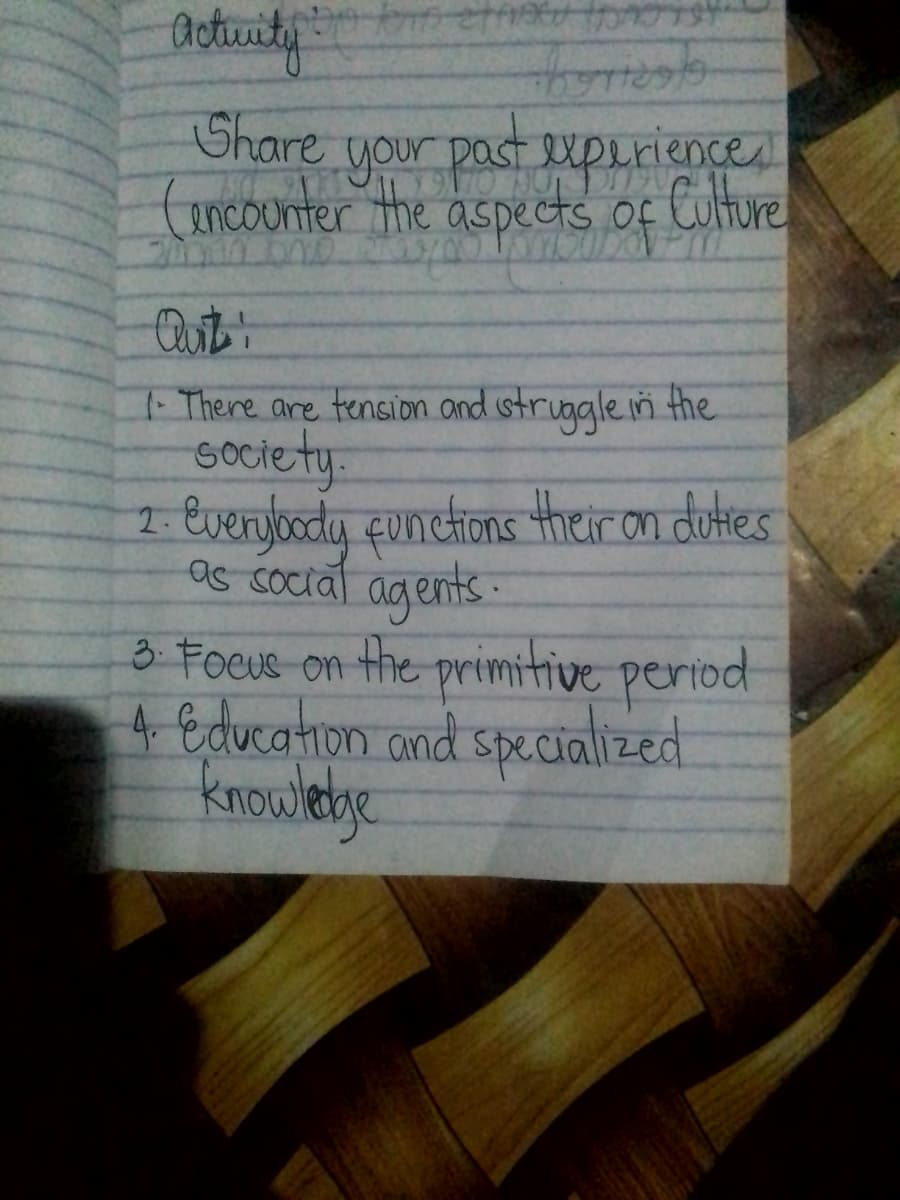 Activity:
Share your past experience
(encounter the aspects of Culture
Quiz:
1- There are tension and struggle in the
society.
2. Everybody functions their on duties
as social agents.
3. Focus on the primitive period
4. Education and specialized
knowledge